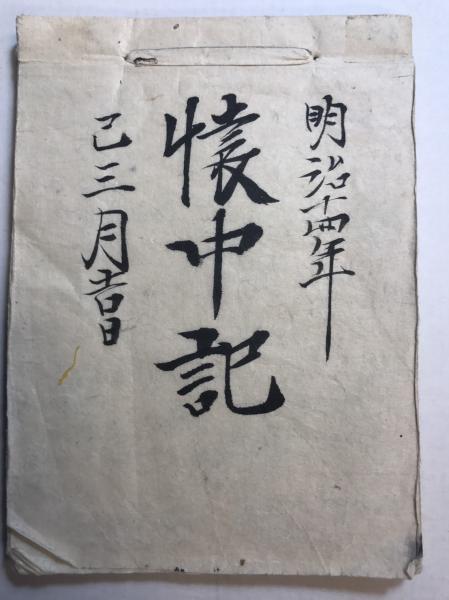 明治十四年
懐中記
巳三月吉日